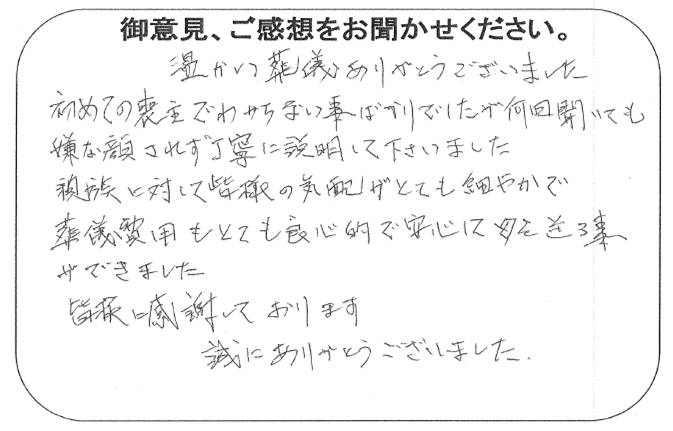 御意見、ご感想をお聞かせください。
温かい葬儀ありがとうございました
初めての喪主でわからない事ばかりでしたが何回聞いても
嫌な顔されず丁寧に説明して下さいました
親族に対して皆様の気配がとても細やかで
葬儀費用もとても良心的で安心して父を送る事
ができました
皆様に感謝しております
誠にありがとうございました.